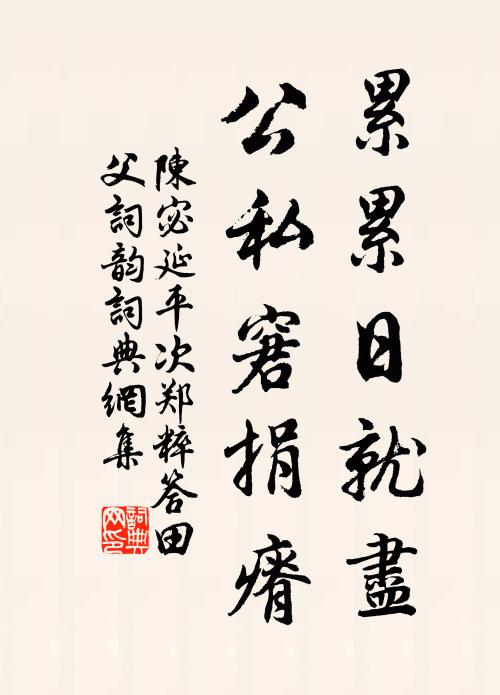 累累日就盡
公私窘捐瘠
陳宓延平次郑粹答田
父詞韵詞典網集
詞典
网印